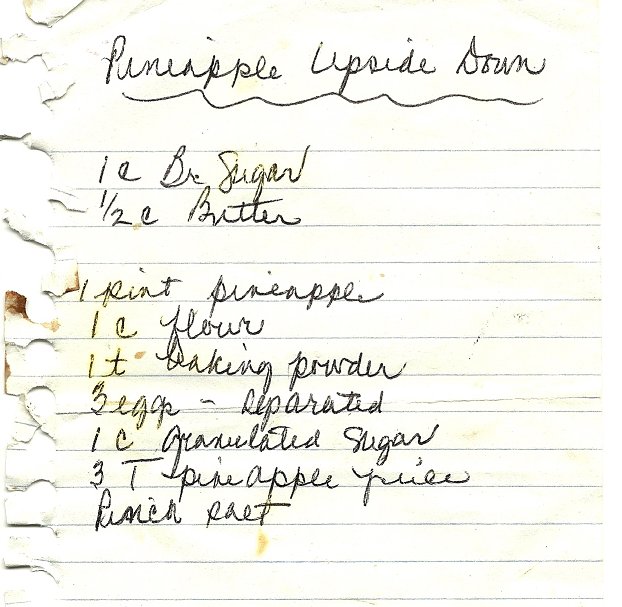 Pineapple Upside Down
1 c Br. Sugar
1/2 c Butter
1 pint pineapple
1 c flour
1 t baking powder
3 eggs - separated
1 c granulated sugar
3 T pineapple juice
Pinch salt